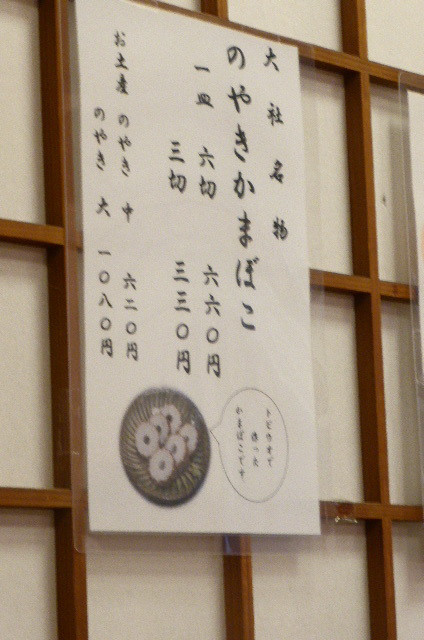 大社名物
のやきかまぼこ
一皿 六切 六六〇円
三切 三三〇円
お土産 のやき 中 六二〇円
のやき 大 一〇八〇円
トビウオで
作った
かまぼこです